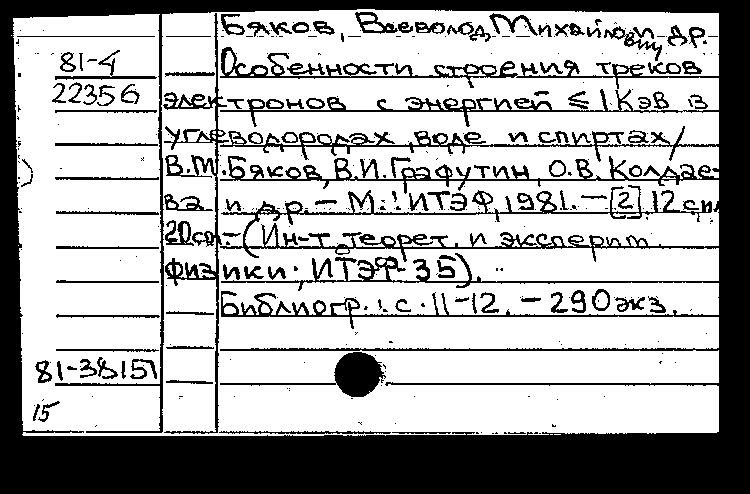 Бяков, Всеволод Михайлович и др.
81-4
22356
Особенности строения треков
электронов с энергией ≤ 1 Кэв в
углеводородах, воде и спиртах/
В.М. Бяков, В.И. Графутин, О.В. Колдае-
ва и др. - М.: ИТЭФ, 1981. - [2], 12 с
20см. - (Ин-т теорет. и эксперим.
физики; ИТЭФ-35).
Библиогр.: с. 11-12. - 290 экз.
81-38151
15